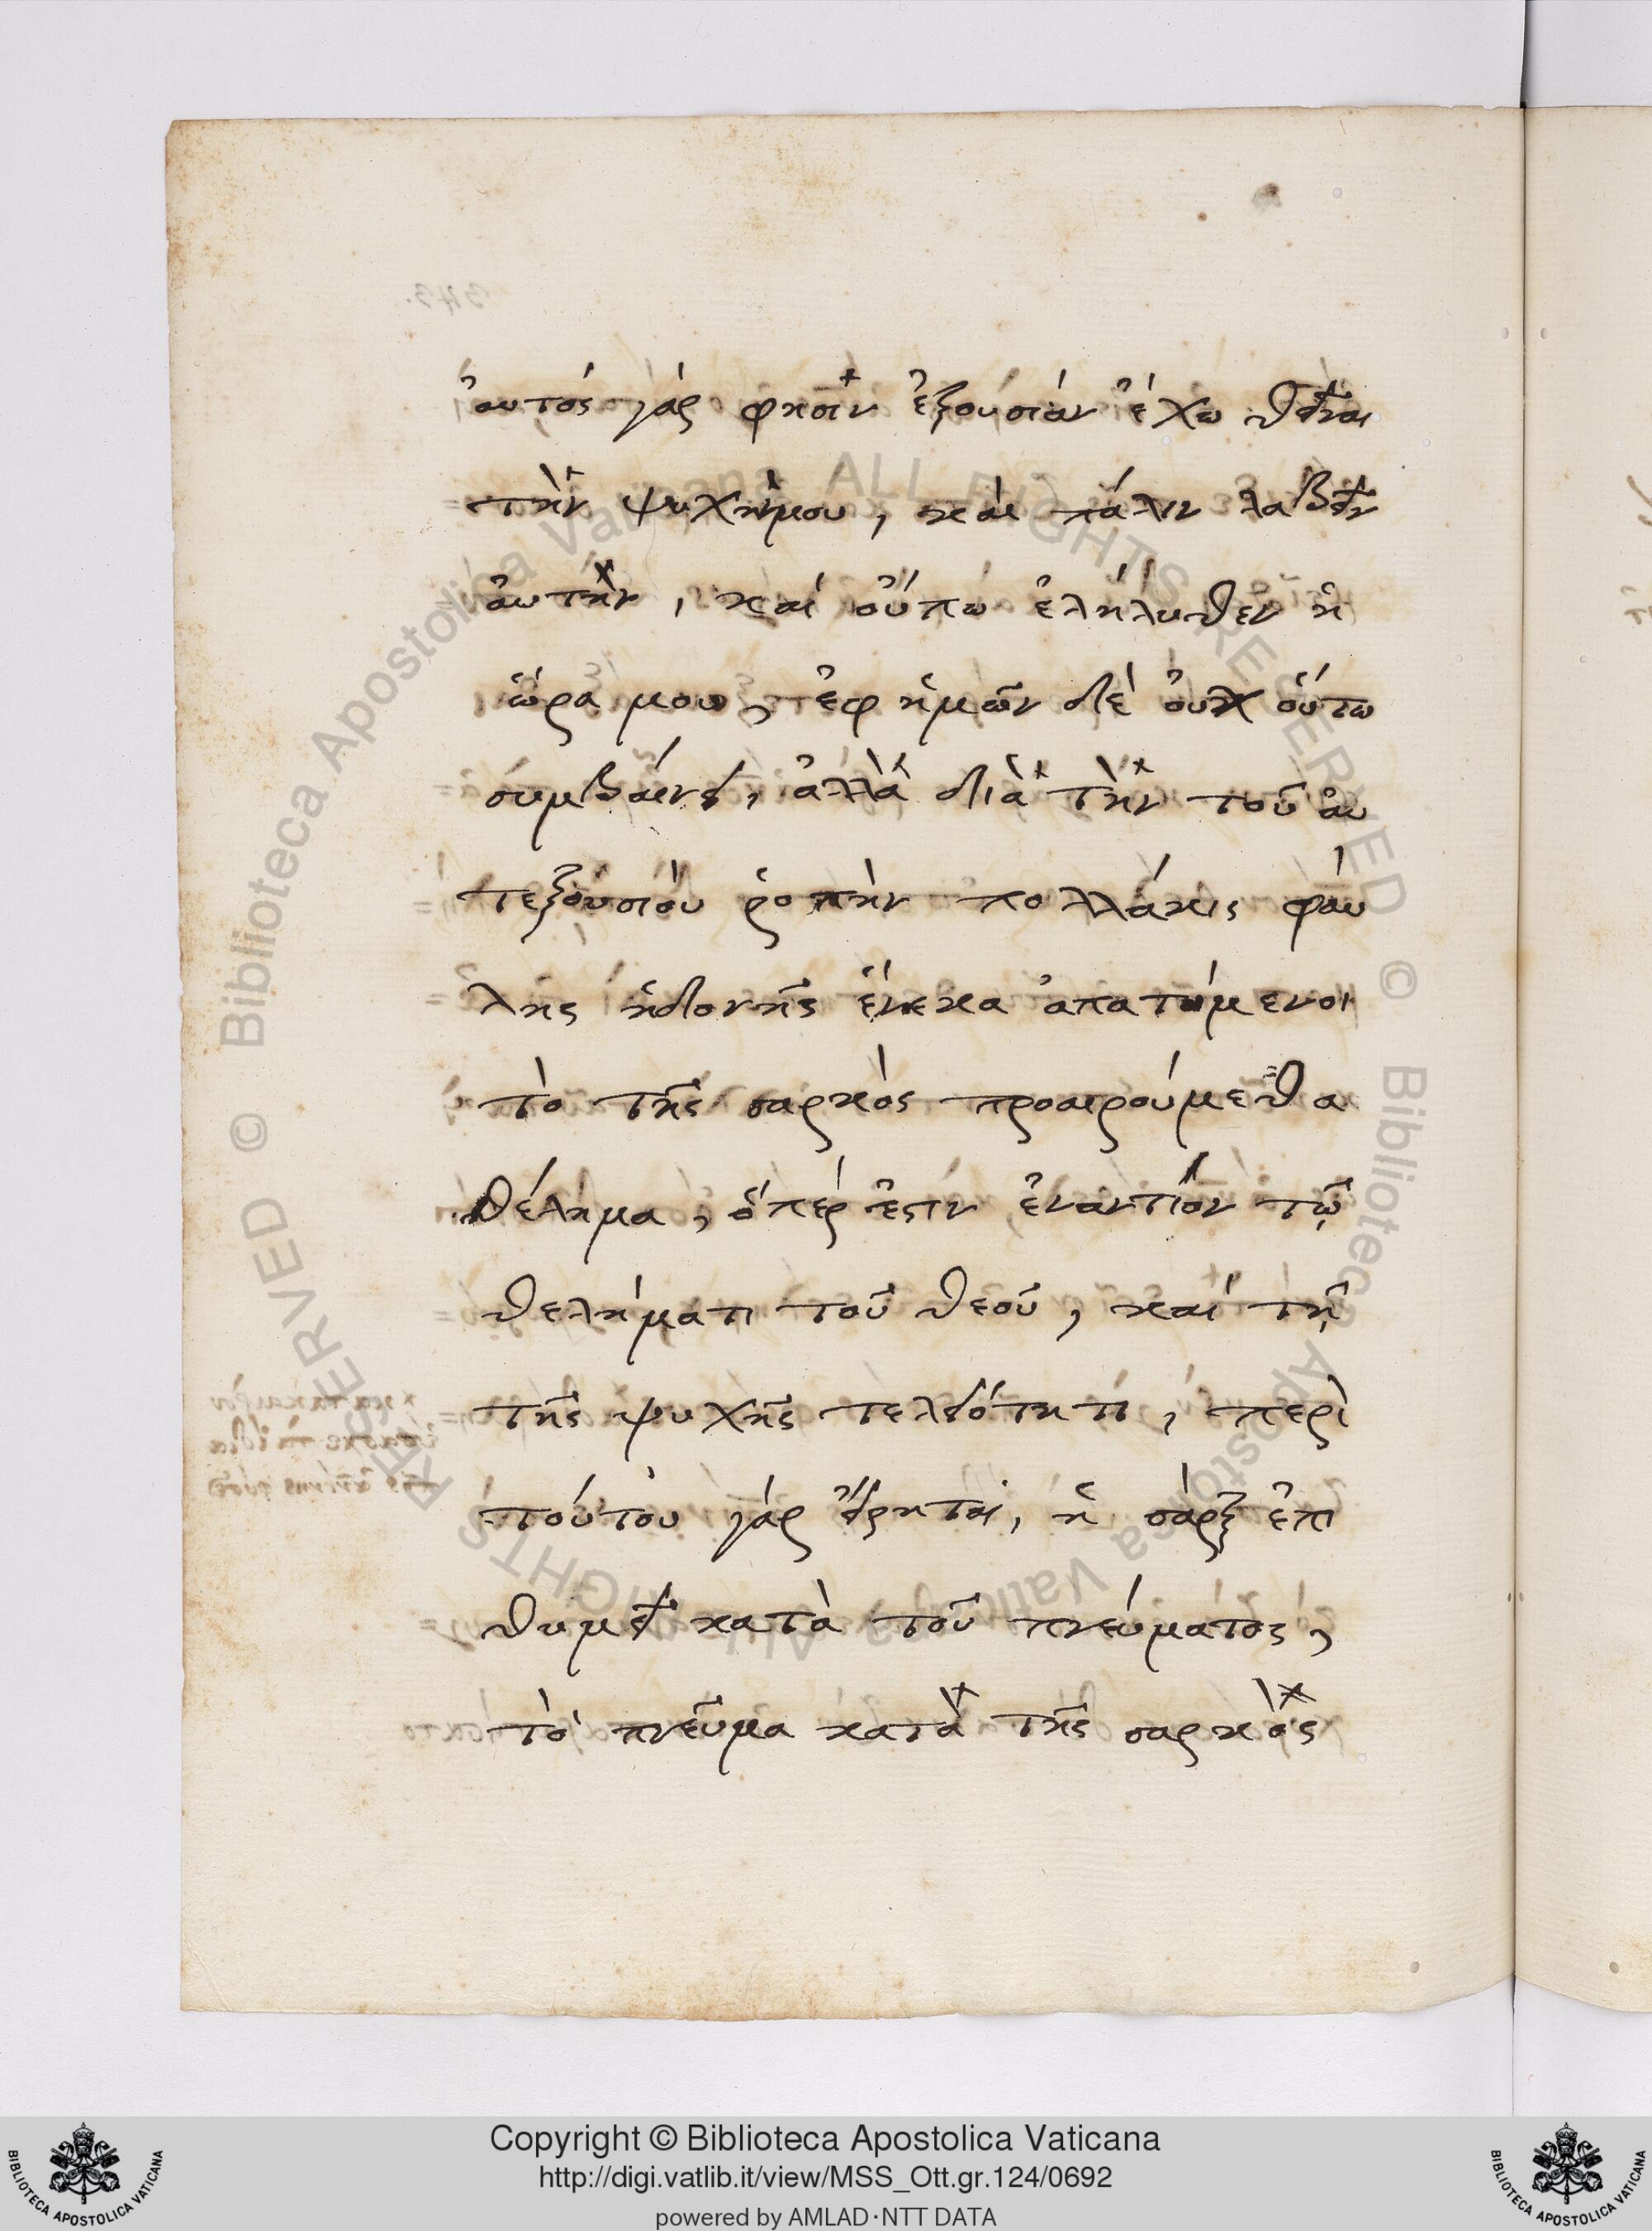 ἀυτός γάρ φησὶν ἐξουσίαν ἔχω θεῖναι
τὴν ψυχήν μου, καὶ πάλιν λαβεῖν
ἀυτὴν, καί ὄυπω ἐλήλυθεν ἡ
ὥρα μου, ἐφ ἡμῶν δὲ ὀυχ ὅυτω
συμβάινει, ἀλλὰ διὰ τὴν τοῦ ἀυ
τεξουσίου ῥοπὴν πολλάκις φάυ
λης ἡδονῆς ἕνεκα ἀπατώμενοι
τὸ τῆς σαρκὸς προαιρούμεθα
θέλημα, ὅπέρ ἐστιν ἐναντίον τῷ
θελήματι τοῦ θεοῦ, καί τῇ
τῆς ψυχῆς τελειότητι, περὶ
τούτου γάρ ἔιρηται, ἡ σὰρξ ἐπι
θυμεῖ κατὰ τοῦ πνέυματος,
τὸ πνεῦμα κατὰ τῆς σαρκὸς
Copyright © Biblioteca Apostolica Vaticana
http://digi.vatlib.it/view/MSS_Ott.gr.124/0692
powered by AMLAD·NTT DATA